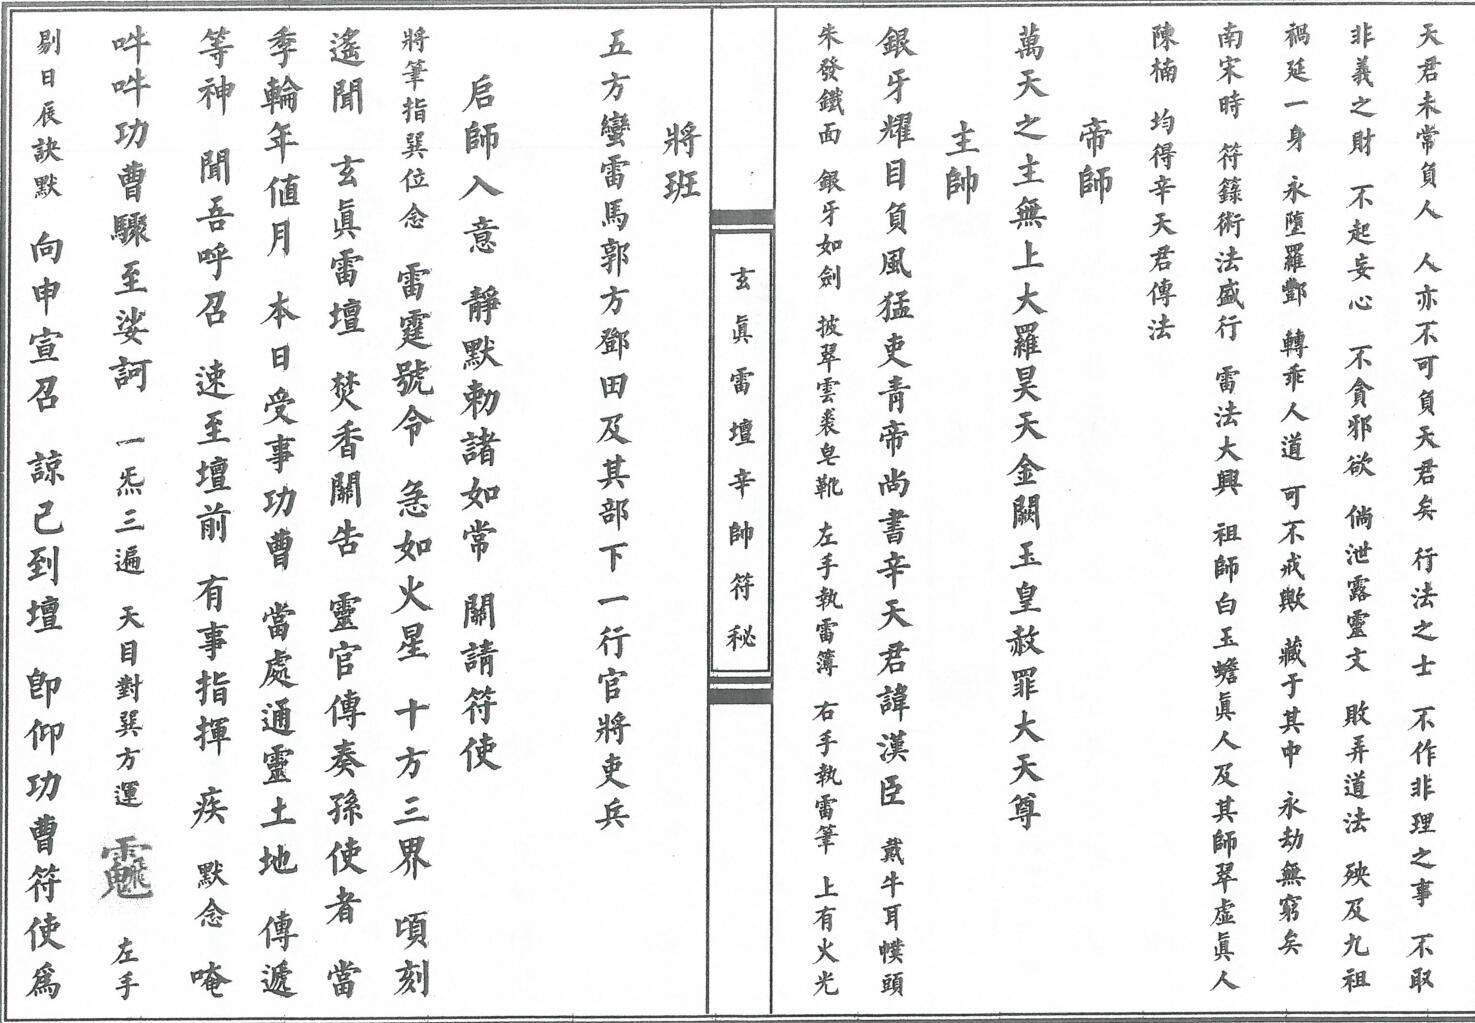 天君未常負人　人亦不可負天君矣　行法之士　不作非理之事　不取
非義之財　不起妄心　不貪邪欲　倘泄露靈文　敗弄道法　殃及九祖
禍延一身　永墮羅酆　轉乖人道　可不戒歟　藏于其中　永劫無窮矣
南宋時　符籙術法盛行　雷法大興　祖師白玉蟾眞人及其師翠虛眞人
陳楠　均得辛天君傳法
帝師
萬天之主無上大羅昊天金闕玉皇赦罪大天尊
主帥
銀牙耀目負風猛吏青帝尚書辛天君諱漢臣　戴牛耳幞頭
朱發鐵面　銀牙如劍　披翠雲裘皂靴　左手執雷簿　右手執雷筆　上有火光
玄眞雷壇辛帥符秘
將班
五方蠻雷馬郭方鄧田及其部下一行官將吏兵
启師入意　靜默勅諸如常　關請符使
將筆指巽位念　雷霆號令　急如火星　十方三界　頃刻
遙聞　玄眞雷壇　焚香關告　靈官傳奏孫使者　當
季輪年値月　本日受事功曹　當處通靈土地　傳遞
等神　聞吾呼召　速至壇前　有事指揮　疾　默念　唵
吽吽功曹驟至娑訶　一炁三遍　天目對巽方運　左手
剔日辰訣默　向申宣召　諒已到壇　卽仰功曹符使爲